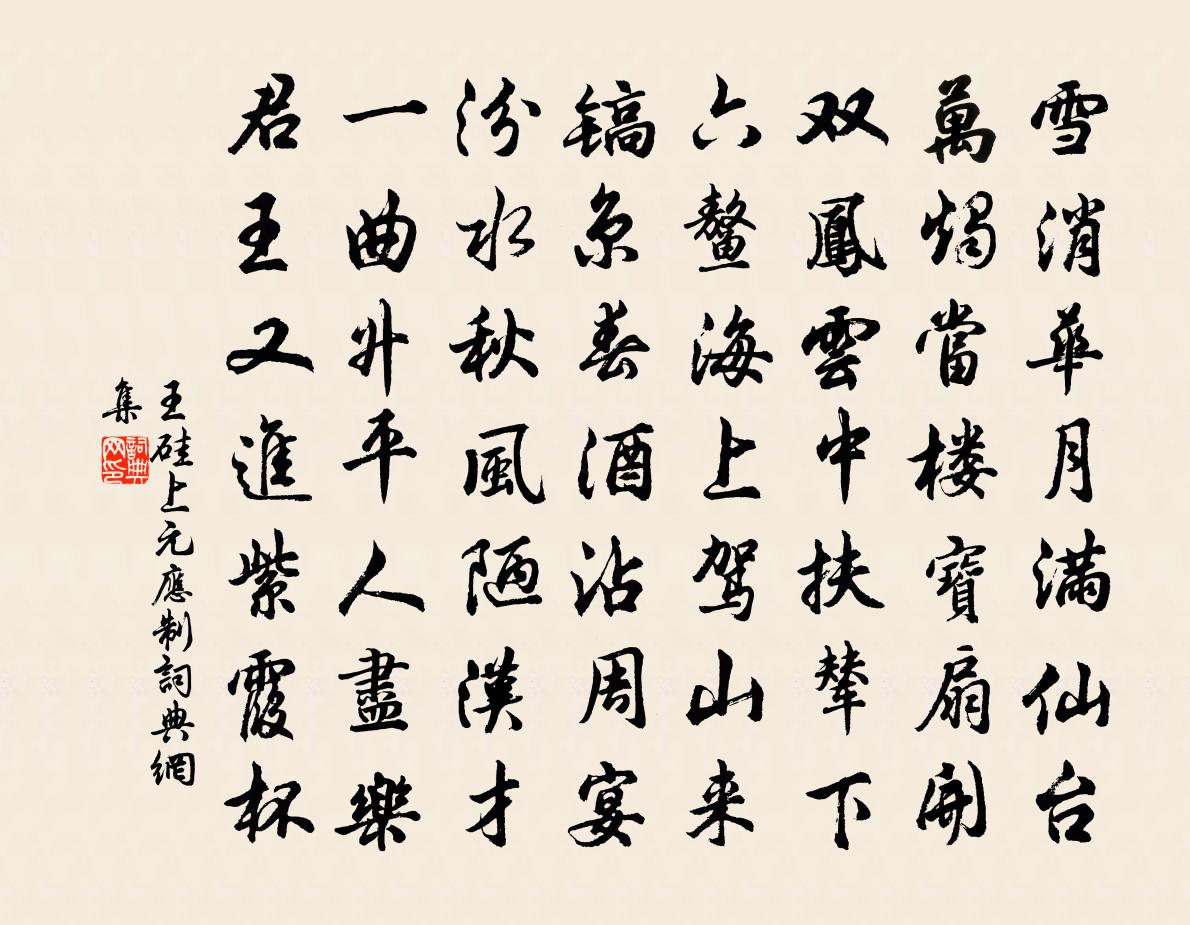 雪消華月满仙台
萬燭當楼寶扇開
双鳳雲中扶輦下
六鳌海上驾山来
镐京春酒沾周宴
汾水秋風陋漢才
一曲升平人盡樂
君王又進紫霞杯
王硅上元應制詞典網
集
詞典
网印